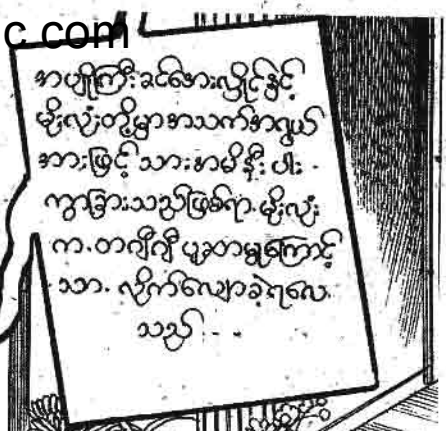 c.com
အပျိုကြီး ခင်အေးလှိုင်နှင့်
မိုးလုံးတို့မှာ အသက်အရွယ်
အားဖြင့် သားအမိနီးပါး
ကွာခြားသည်ဖြစ်ရာ. မိုးလုံး
က. တဂျီဂျီ ပူဆာမှုကြောင့်
သာ. လိုက်လျောခဲ့ရလေ
သည် . - -